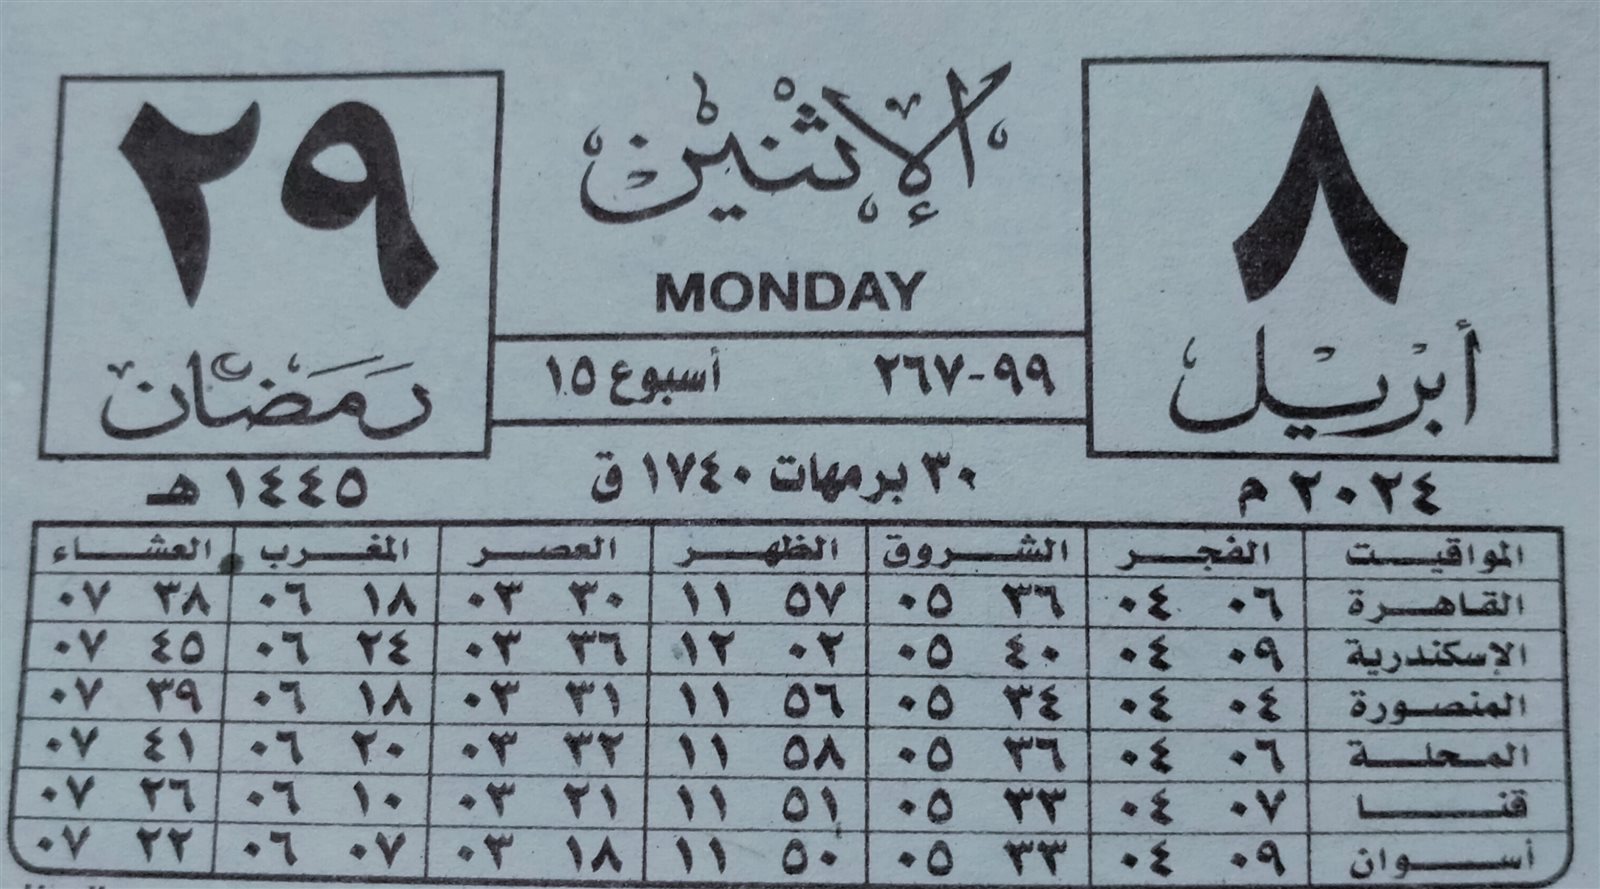 ٨ الإثنين ٢٩
أبريل MONDAY رمضان
٩٩-٢٦٧ أسبوع ١٥
٢٠٢٤ م ٣٠ برمهات ١٧٤٠ ق ١٤٤٥ هـ
المواقيت الفجر الشروق الظهر العصر المغرب العشاء
القاهرة ٠٦ ٠٤ ٣٦ ٠٥ ٥٧ ١١ ٣٠ ٠٣ ١٨ ٠٦ ٣٨ ٠٧
الإسكندرية ٠٩ ٠٤ ٤٠ ٠٥ ٠٢ ١٢ ٣٦ ٠٣ ٢٤ ٠٦ ٤٥ ٠٧
المنصورة ٠٤ ٠٤ ٣٤ ٠٥ ٥٦ ١١ ٣١ ٠٣ ١٨ ٠٦ ٣٩ ٠٧
المحلة ٠٦ ٠٤ ٣٦ ٠٥ ٥٨ ١١ ٣٢ ٠٣ ٢٠ ٠٦ ٤١ ٠٧
قنا ٠٧ ٠٤ ٣٣ ٠٥ ٥١ ١١ ٢١ ٠٣ ١٠ ٠٦ ٢٦ ٠٧
أسوان ٠٩ ٠٤ ٣٣ ٠٥ ٥٠ ١١ ١٨ ٠٣ ٠٧ ٠٦ ٢٢ ٠٧